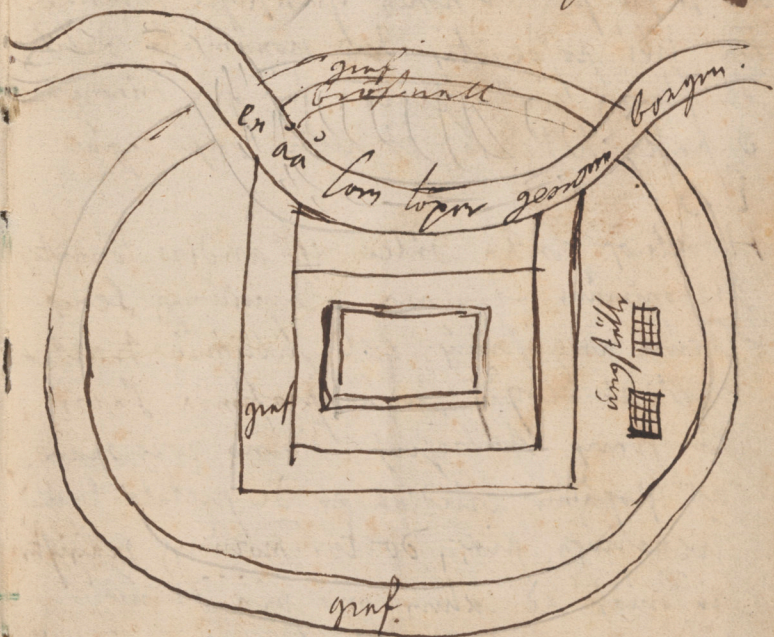 graf
bröstvall
en åå som löper genom borgen.
graf
ungställe
graf.